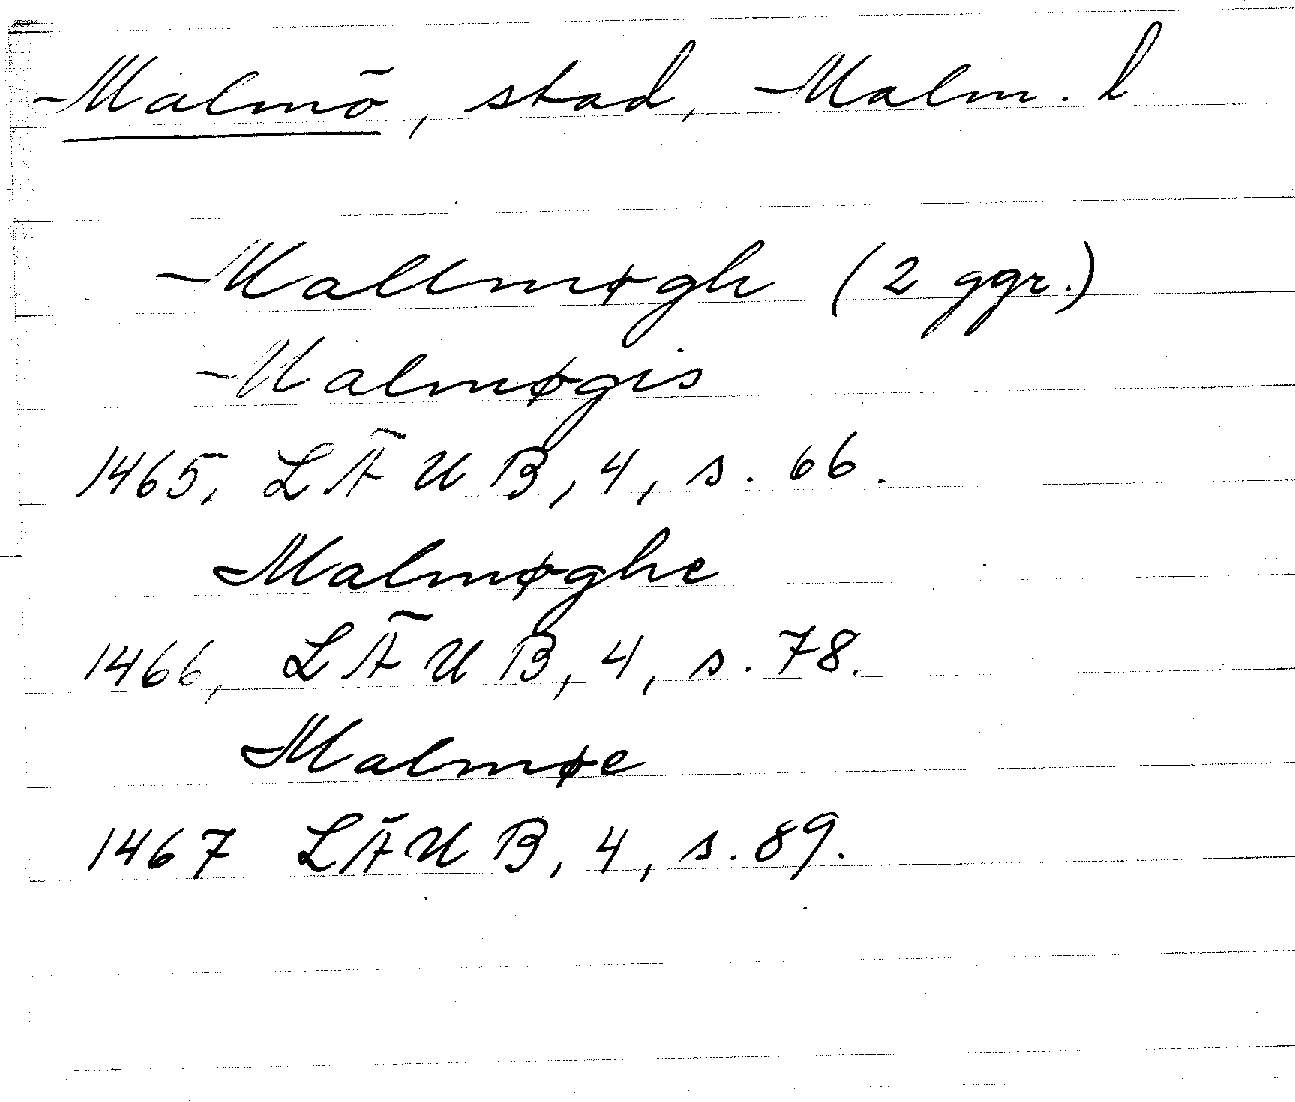 Malmö, stad, Malm. l
Mallmøgh (2 ggr.)
Malmøgis
1465, LÄUB, 4, s. 66.
Malmøghe
1466, LÄUB, 4, s. 78.
Malmøe
1467 LÄUB, 4, s. 89.